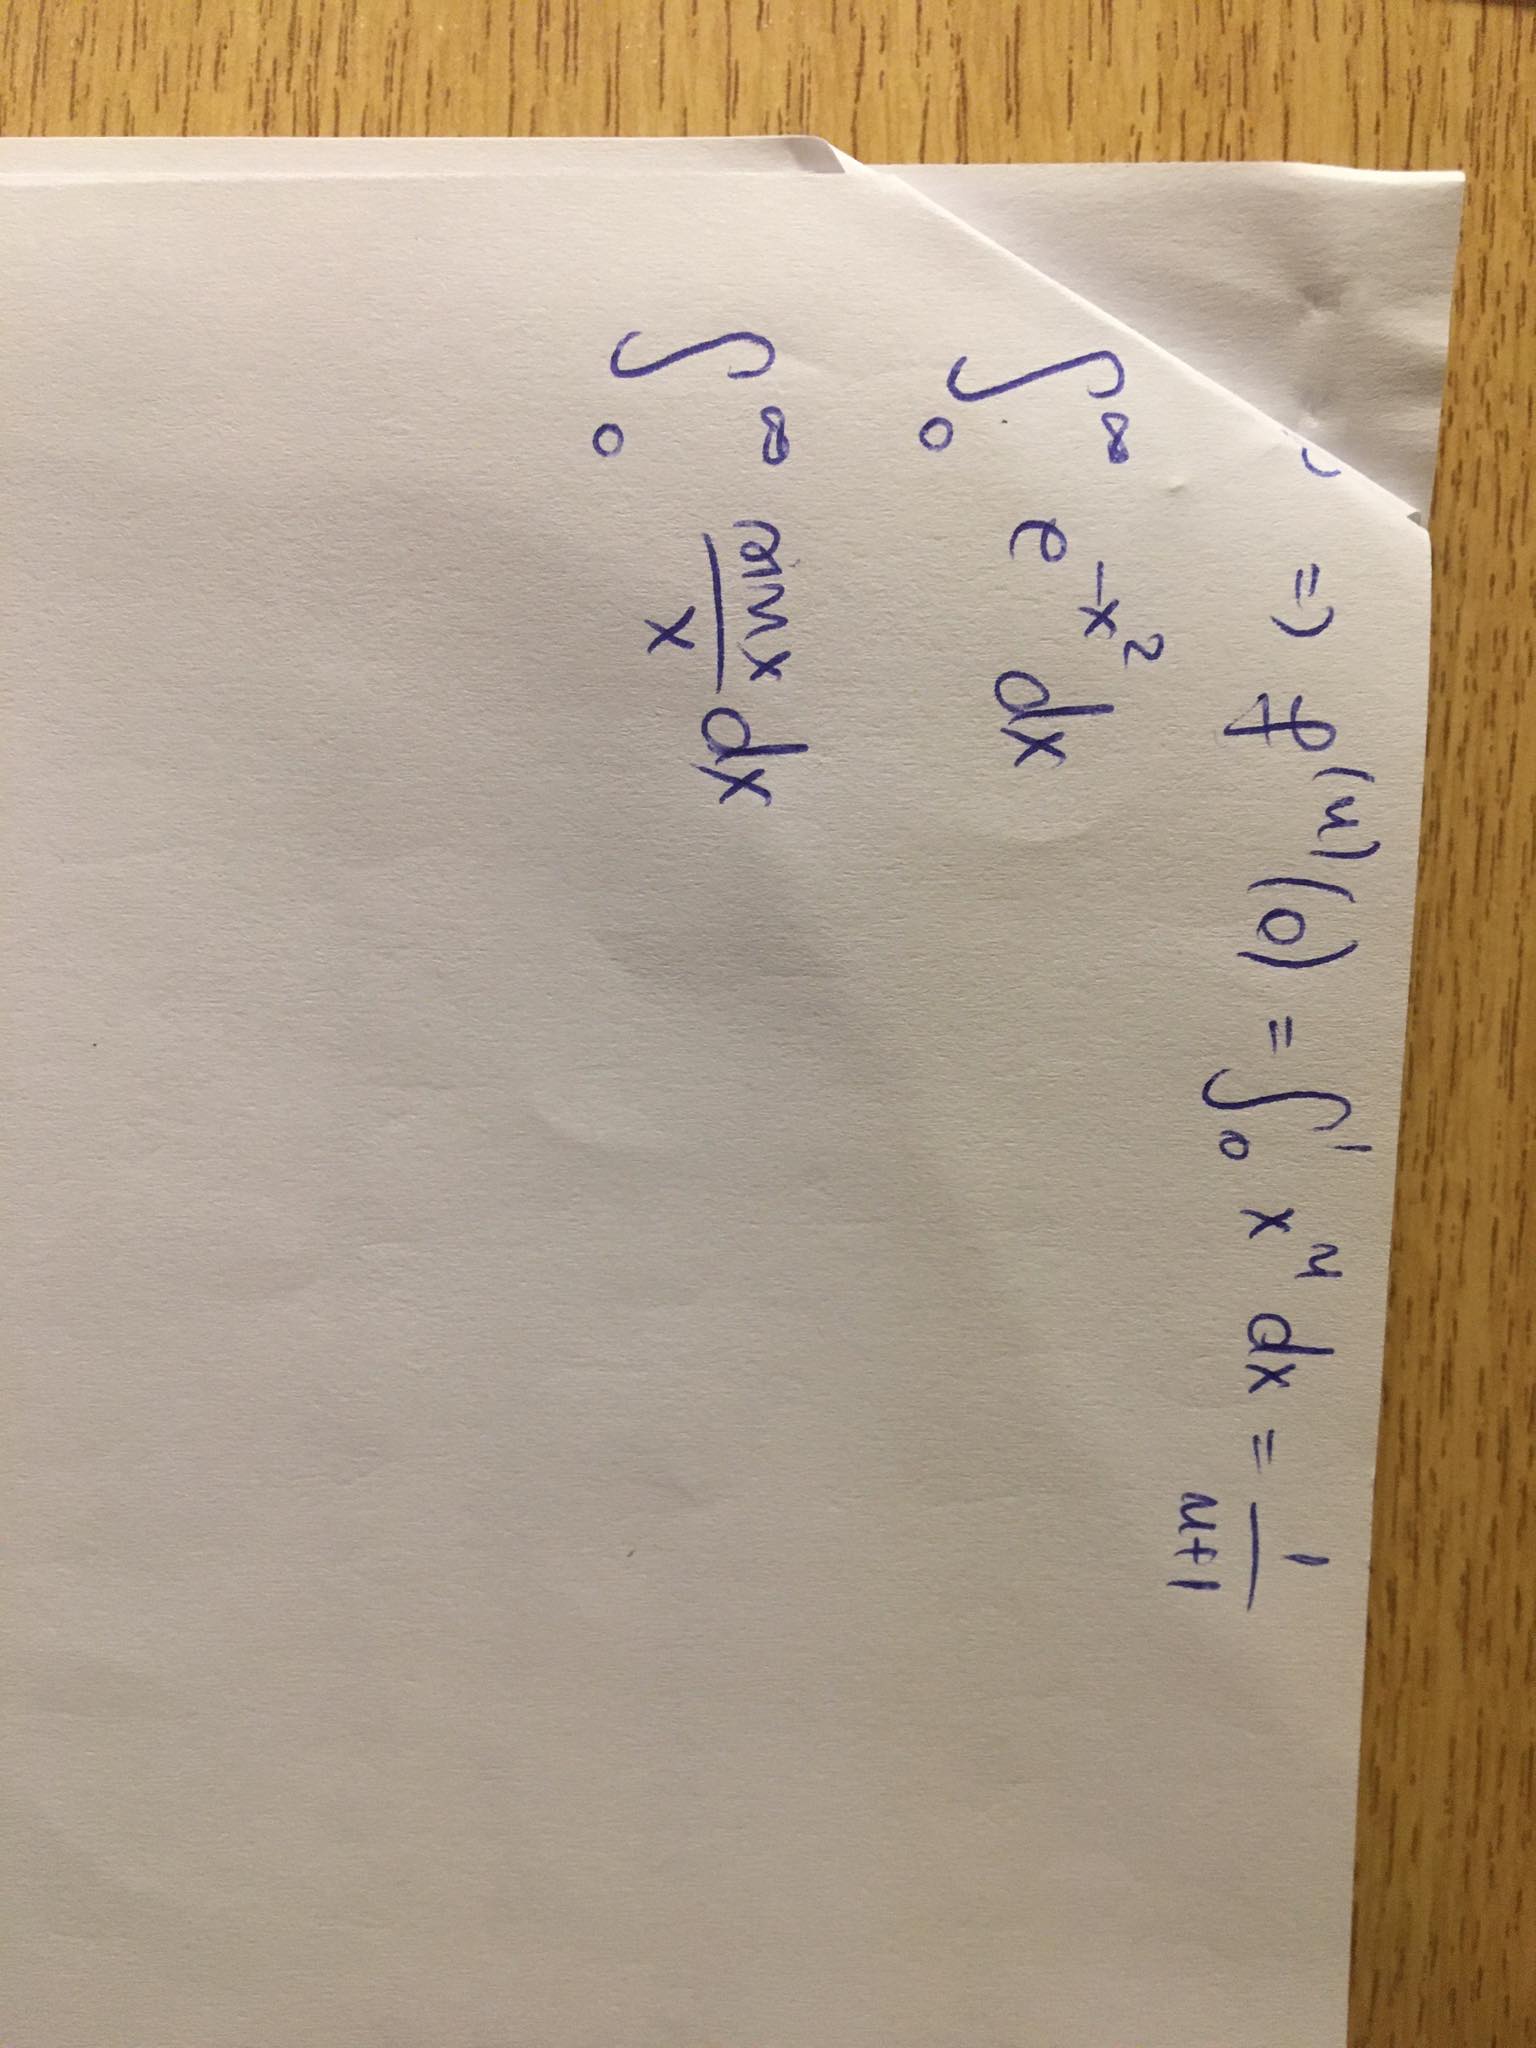 => f^(n)(0) = ∫_0^1 x^n dx = 1/(n+1)
∫_0^∞ e^(-x^2) dx
∫_0^∞ (sin x)/x dx